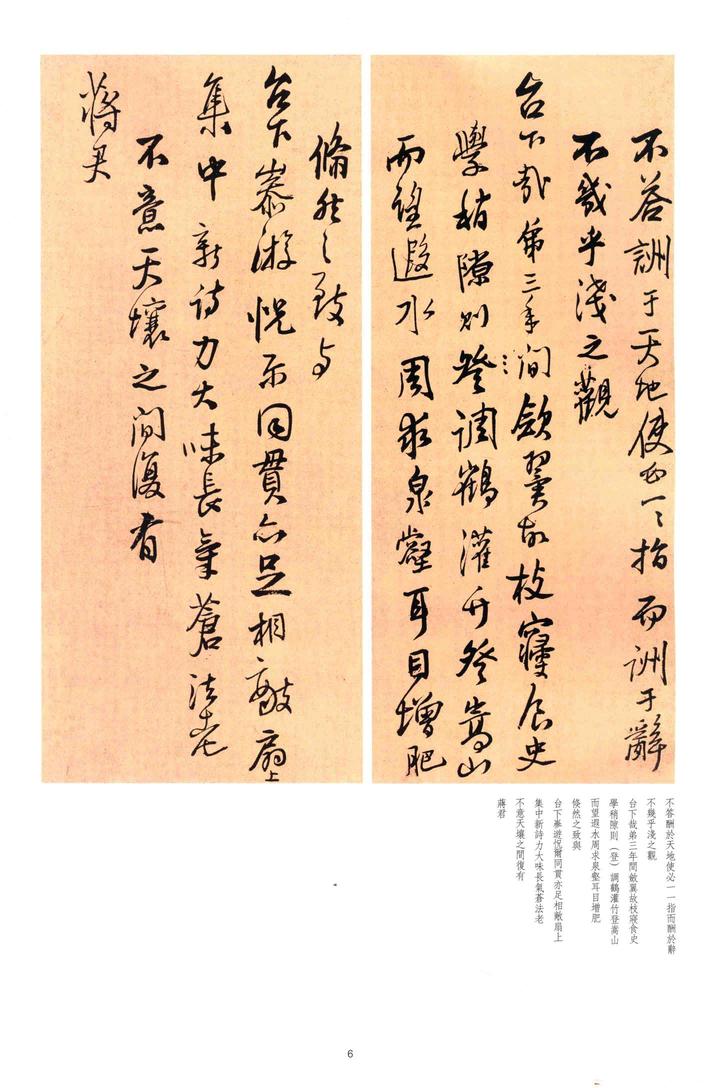 不答詶于天地使必一一指而詶于辭
不幾乎淺之觀
台下哉第三年間斂翼故枝寢食史
學稍隙則登調鶴灌竹登嵩山
而望遐水周求泉壑耳目增肥
翛然之致与
台下嵾游怳尔同貫亦足相敵扇上
集中新诗力大味長氣蒼法老
不意天壤之間復有
蔣君
不答酬於天地使必一一指而酬於辭
不幾乎淺之觀
台下哉第三年間斂翼故枝寢食史
學稍隙則（登）調鶴灌竹登嵩山
而望遐水周求泉壑耳目增肥
倏然之致與
台下嵾遊怳爾同貫亦足相敵扇上
集中新詩力大味長氣蒼法老
不意天壤之間復有
蔣君
6